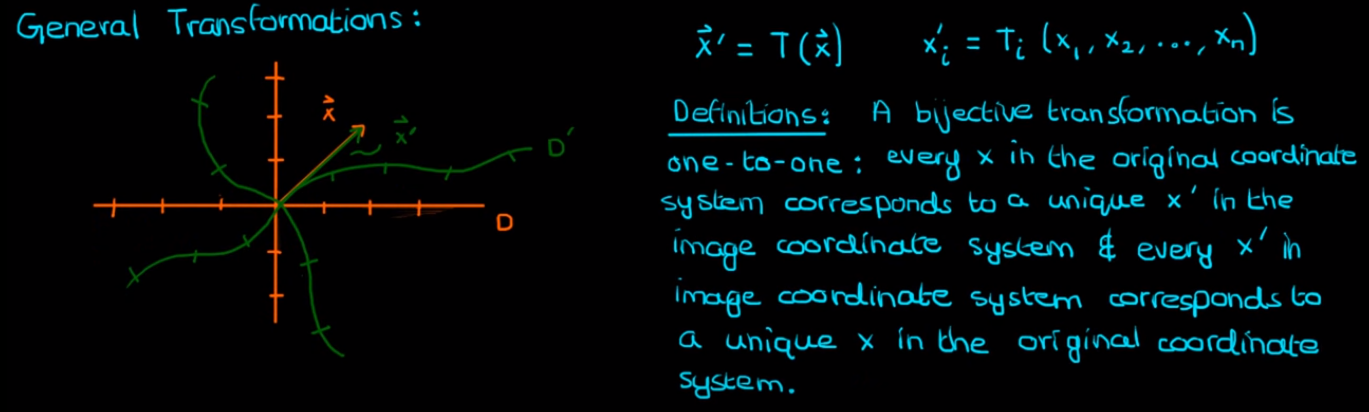 General Transformations:
x⃗
x⃗'
D'
D
x⃗' = T(x⃗)
x'ᵢ = Tᵢ (x₁, x₂, ..., xₙ)
Definitions: A bijective transformation is
one-to-one: every x in the original coordinate
system corresponds to a unique x' in the
image coordinate system & every x' in
image coordinate system corresponds to
a unique x in the original coordinate
system.